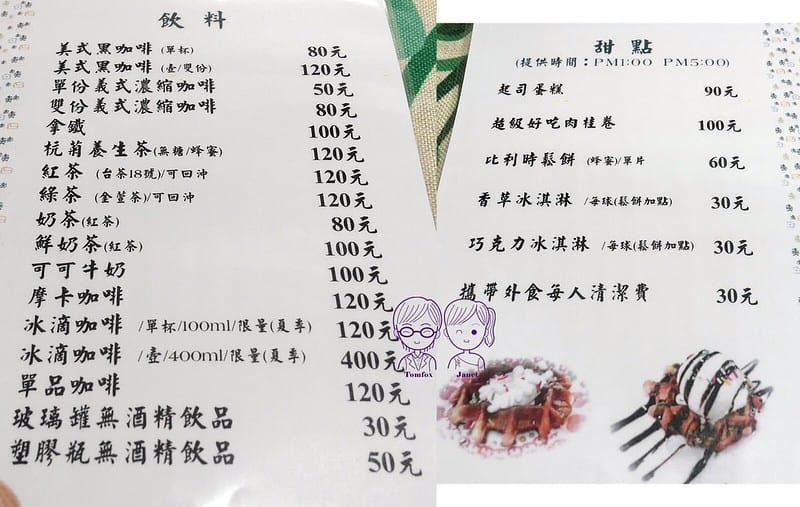 飲料
美式黑咖啡 (單杯) 80元
美式黑咖啡 (壺/雙份) 120元
單份義式濃縮咖啡 50元
雙份義式濃縮咖啡 80元
拿鐵 100元
杭菊養生茶(無糖/蜂蜜) 120元
紅茶 (台茶18號)/可回沖 120元
綠茶 (金萱茶)/可回沖 120元
奶茶(紅茶) 80元
鮮奶茶(紅茶) 100元
可可牛奶 100元
摩卡咖啡 120元
冰滴咖啡 /單杯/100ml/限量(夏季) 120元
冰滴咖啡 /壺/400ml/限量(夏季) 400元
單品咖啡 120元
玻璃罐無酒精飲品 30元
塑膠瓶無酒精飲品 50元
甜點
(提供時間：PM1:00 PM5:00)
起司蛋糕 90元
超級好吃肉桂卷 100元
比利時鬆餅 (蜂蜜)/單片 60元
香草冰淇淋 /每球(鬆餅加點) 30元
巧克力冰淇淋 /每球(鬆餅加點) 30元
攜帶外食每人清潔費 30元
Tomfox Janet